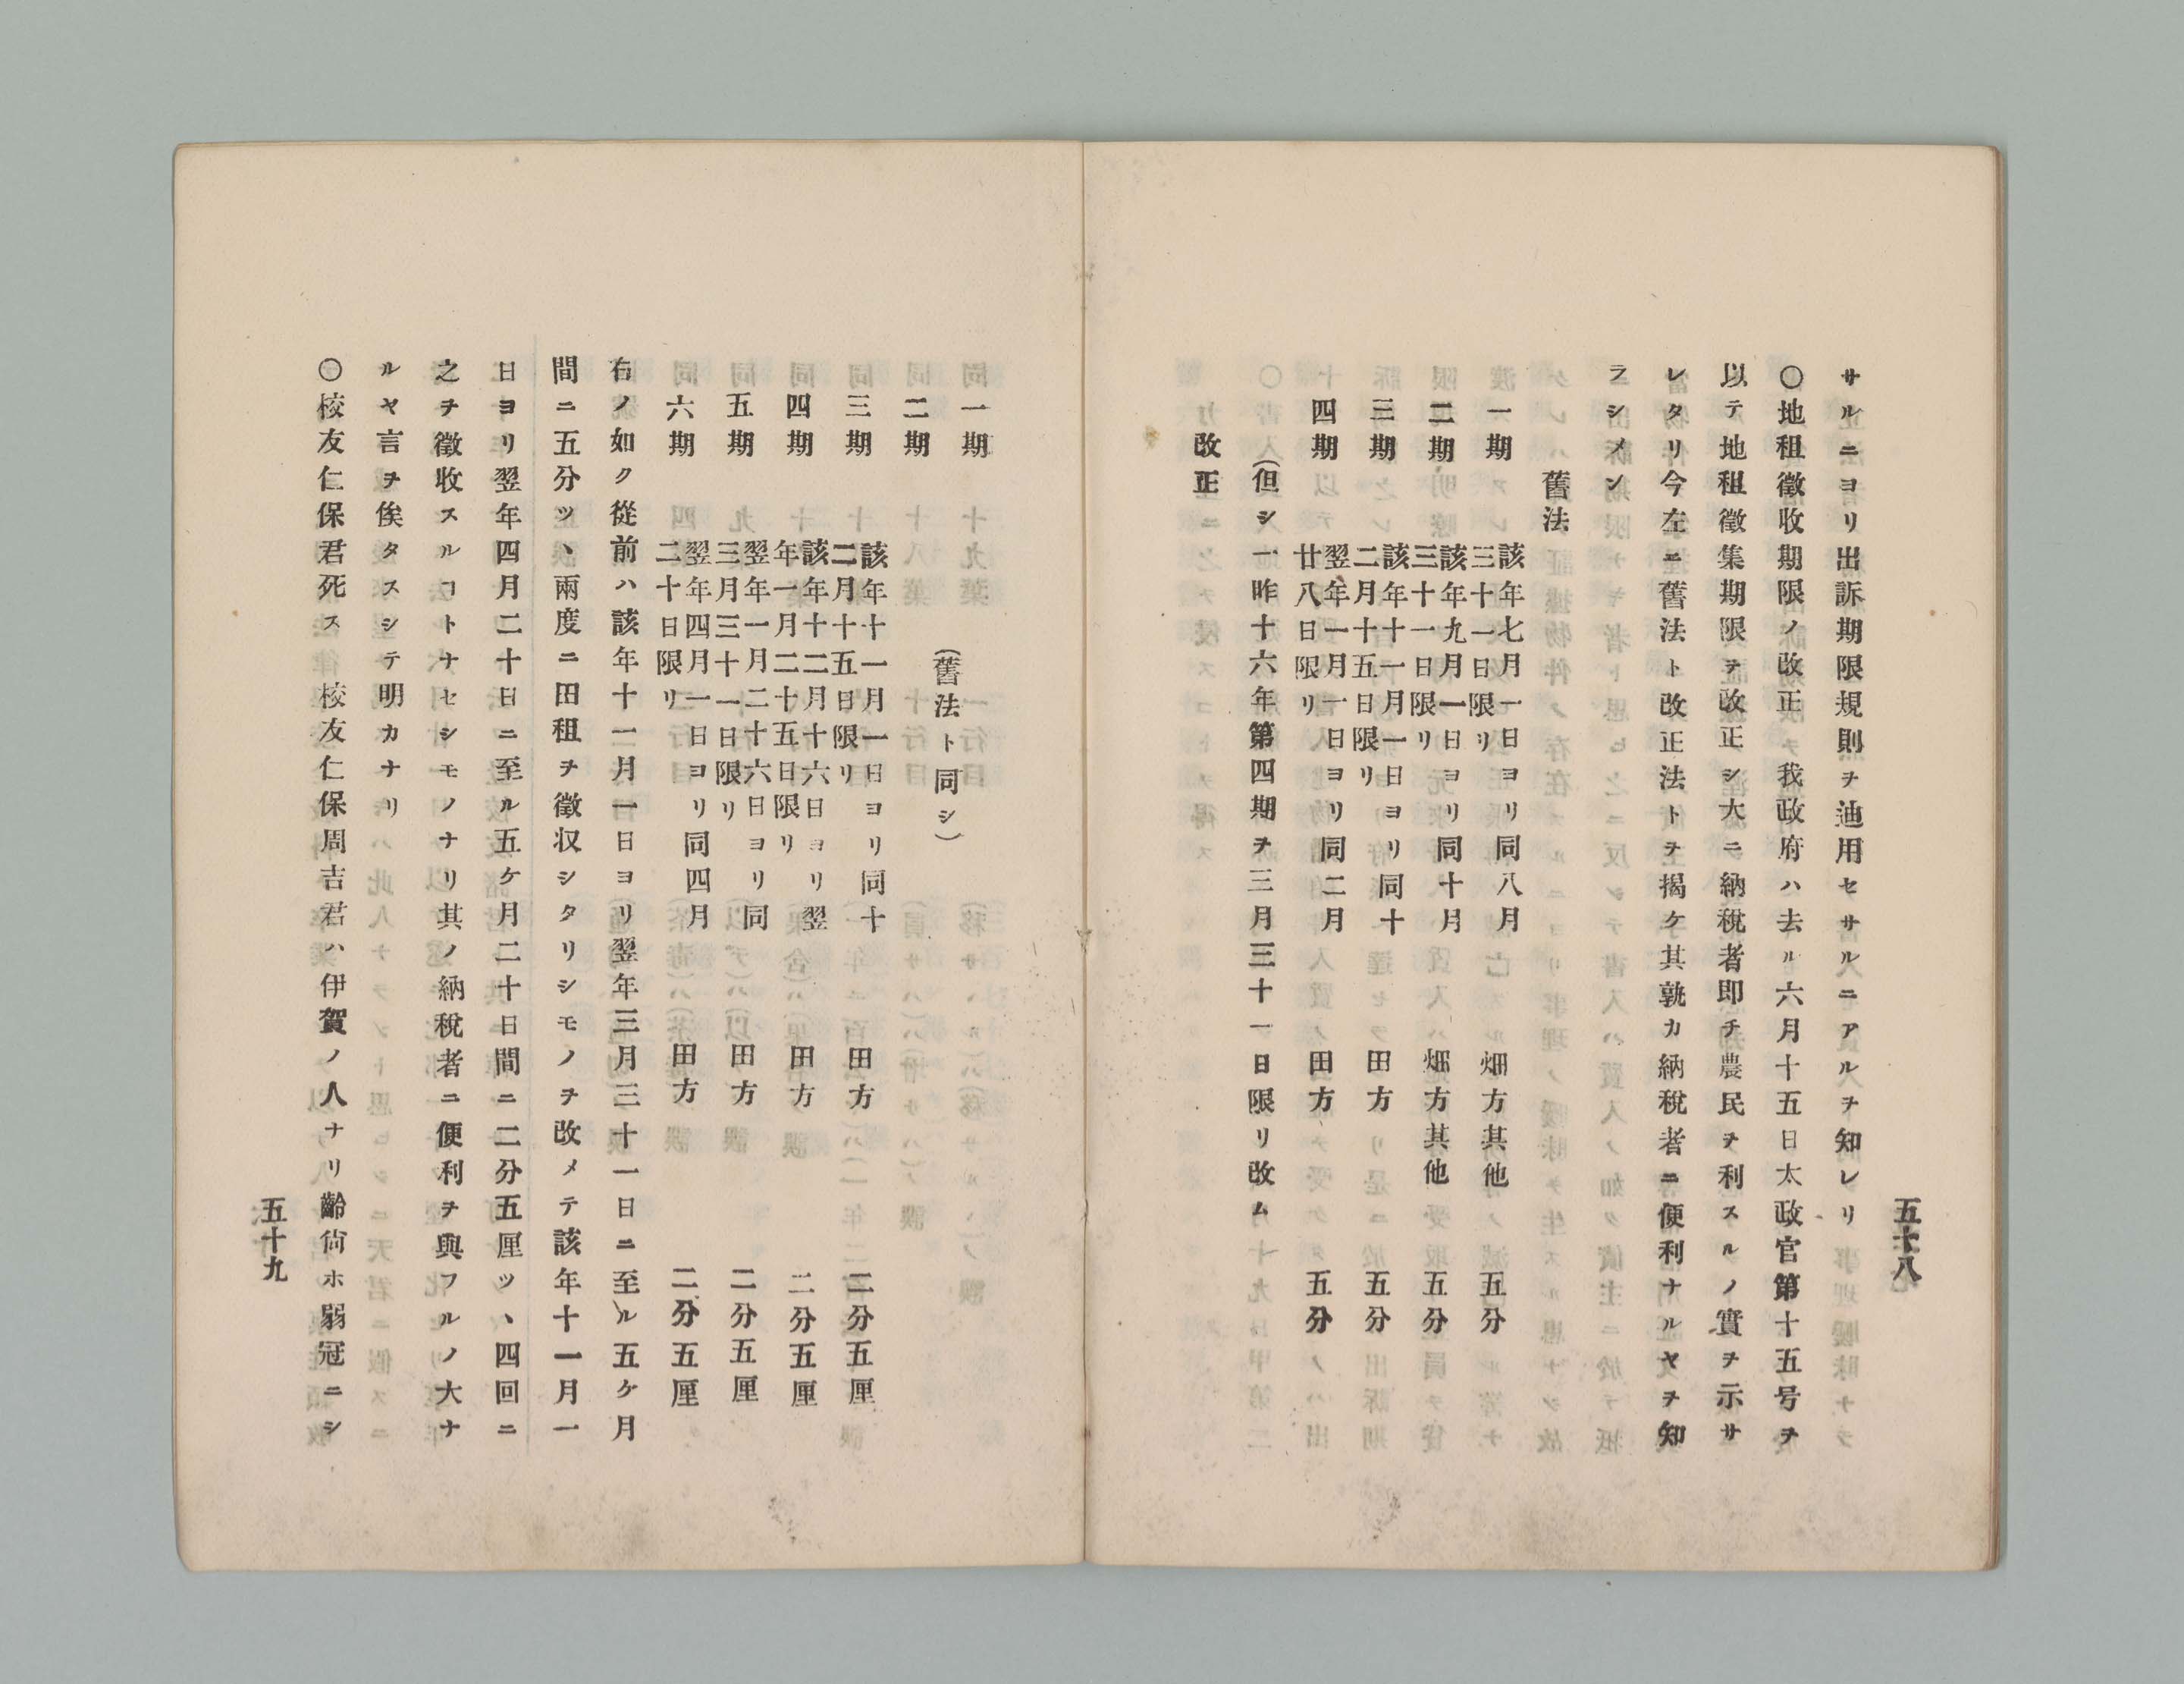 五十八
サルニヨリ出訴期限規則ヲ適用セサルニアルヲ知レリ
〇地租徵收期限ノ改正 我政府ハ去ル六月十五日太政官第十五号ヲ
以テ地租徵集期限ヲ改正シ大ニ納稅者即チ農民ヲ利スルノ實ヲ示サ
レタリ今左ニ舊法ト改正法トヲ揭ケ其孰カ納稅者ニ便利ナルヤヲ知
ラシメン
舊法
一期 該年七月一日ヨリ同八月三十一日限リ 畑方其他 五分
二期 該年九月一日ヨリ同十月三十一日限リ 畑方其他 五分
三期 該年十一月一日ヨリ同十二月十五日限リ 田方 五分
四期 翌年一月一日ヨリ同二月廿八日限リ 田方 五分
(但シ一昨十六年第四期ヲ三月三十一日限リ改ム
改正
一期
(舊法ト同シ)
二期
三期 該年十一月一日ヨリ同十二月十五日限リ 田方 二分五厘
四期 該年十二月十六日ヨリ翌年一月二十五日限リ 田方 二分五厘
五期 翌年一月二十六日ヨリ同三月三十一日限リ 田方 二分五厘
六期 翌年四月一日ヨリ同四月二十日限リ 田方 二分五厘
右ノ如ク從前ハ該年十一月一日ヨリ翌年三月三十一日ニ至ル五ケ月
間ニ五分ツヽ兩度ニ田租ヲ徵収シタリシモノヲ改メテ該年十一月一
日ヨリ翌年四月二十日ニ至ル五ケ月二十日間ニ二分五厘ツヽ四回ニ
之ヲ徵收スルコトナセシモノナリ其ノ納稅者ニ便利ヲ與フルノ大ナ
ルヤ言ヲ俟タスシテ明カナリ
〇校友仁保君死ス 校友仁保周吉君ハ伊賀ノ人ナリ齡尙ホ弱冠ニシ
五十九